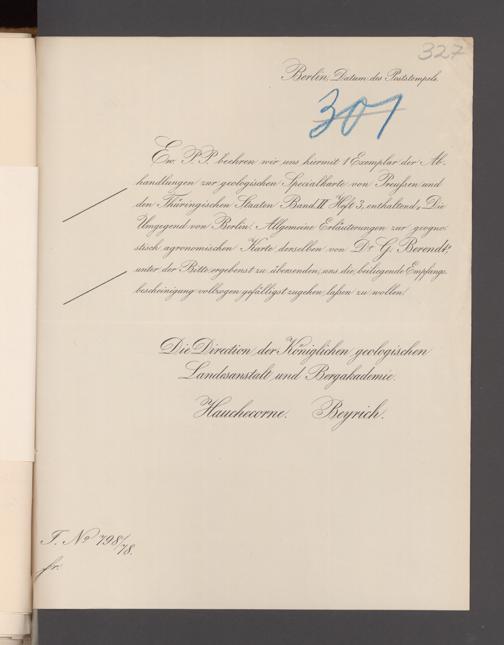 327
Berlin, Datum des Poststempels.
301
Ew. P. P. beehren wir uns hiermit 1 Exemplar der Ab-
handlungen zur geologischen Specialkarte von Preußen und
den Thüringischen Staaten Band II Heft 3, enthaltend „Die
Umgegend von Berlin. Allgemeine Erläuterungen zur geogno-
stisch agronomischen Karte derselben von Dr. G. Berendt,"
unter der Bitte ergebenst zu übersenden, uns die beiliegende Empfangs-
bescheinigung vollzogen gefälligst zugehen laßen zu wollen.
Die Direction der Königlichen geologischen
Landesanstalt und Bergakademie.
Hauchecorne. Beyrich.
T. No. 798/78.
fr.